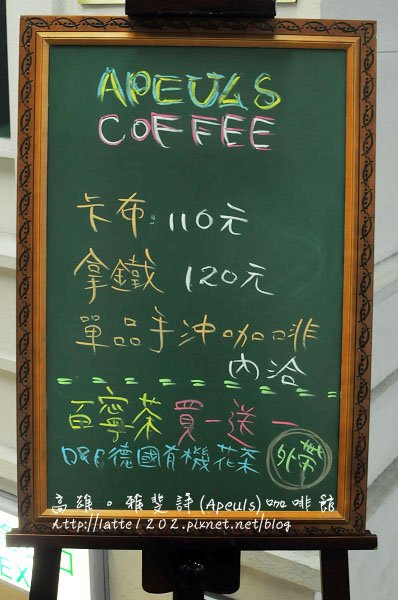 APEULS
COFFEE
卡布 110元
拿鐵 120元
單品手沖咖啡
內洽
百寧茶 買一送一
德國有機花茶 外帶
高雄。雅斐詳(Apeuls)咖啡館
http://latte1202.pixnet.net/blog